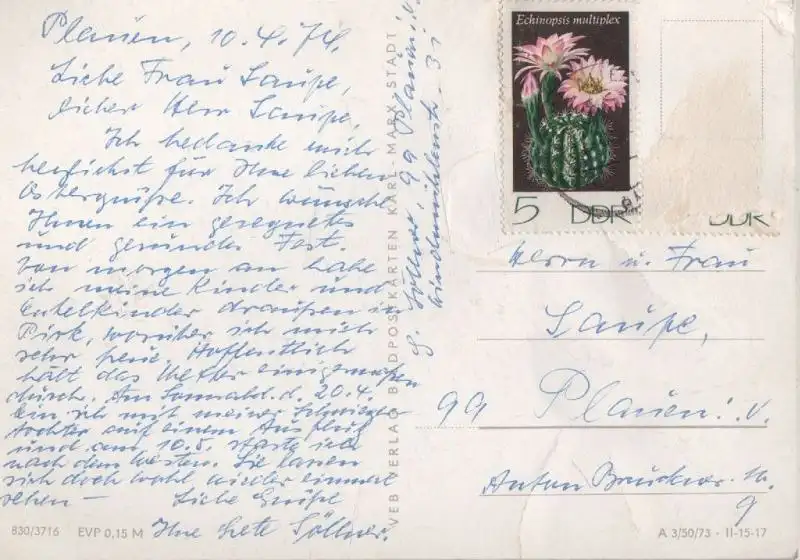 Plauen, 10.4.74.
Liebe Frau Saupe,
lieber Herr Saupe,
Ich bedanke mich
herzlichst für Ihre lieben
Ostergrüße. Ich wünsche
Ihnen ein gesegnetes
und gesundes Fest.
Von morgen an habe
ich meine Kinder und
Enkelkinder draußen in
Pirk, worüber ich mich
sehr freue. Hoffentlich
hält das Wetter einigermaßen
durch. Am Sonnabd. d. 20.4.
bin ich mit meiner Schwieger-
tochter auf einem Ausflug
und am 10.5. starte ich
nach dem Westen. Sie lassen
sich doch wohl wieder einmal
sehen — Liebe Grüße
Ihre Grete Söllner.
G. Söllner, 99 Plauen i. V.
Windmühlenstr. 31
VEB VERLAG BILDPOSTKARTEN KARL-MARX-STADT
Echinopsis multiplex
5 DDR
DDR
Herrn u. Frau
Saupe,
99 Plauen i. V.
Anton Bruckner-Str.
9
830/3716 EVP 0,15 M
A 3/50/73 · II-15-17